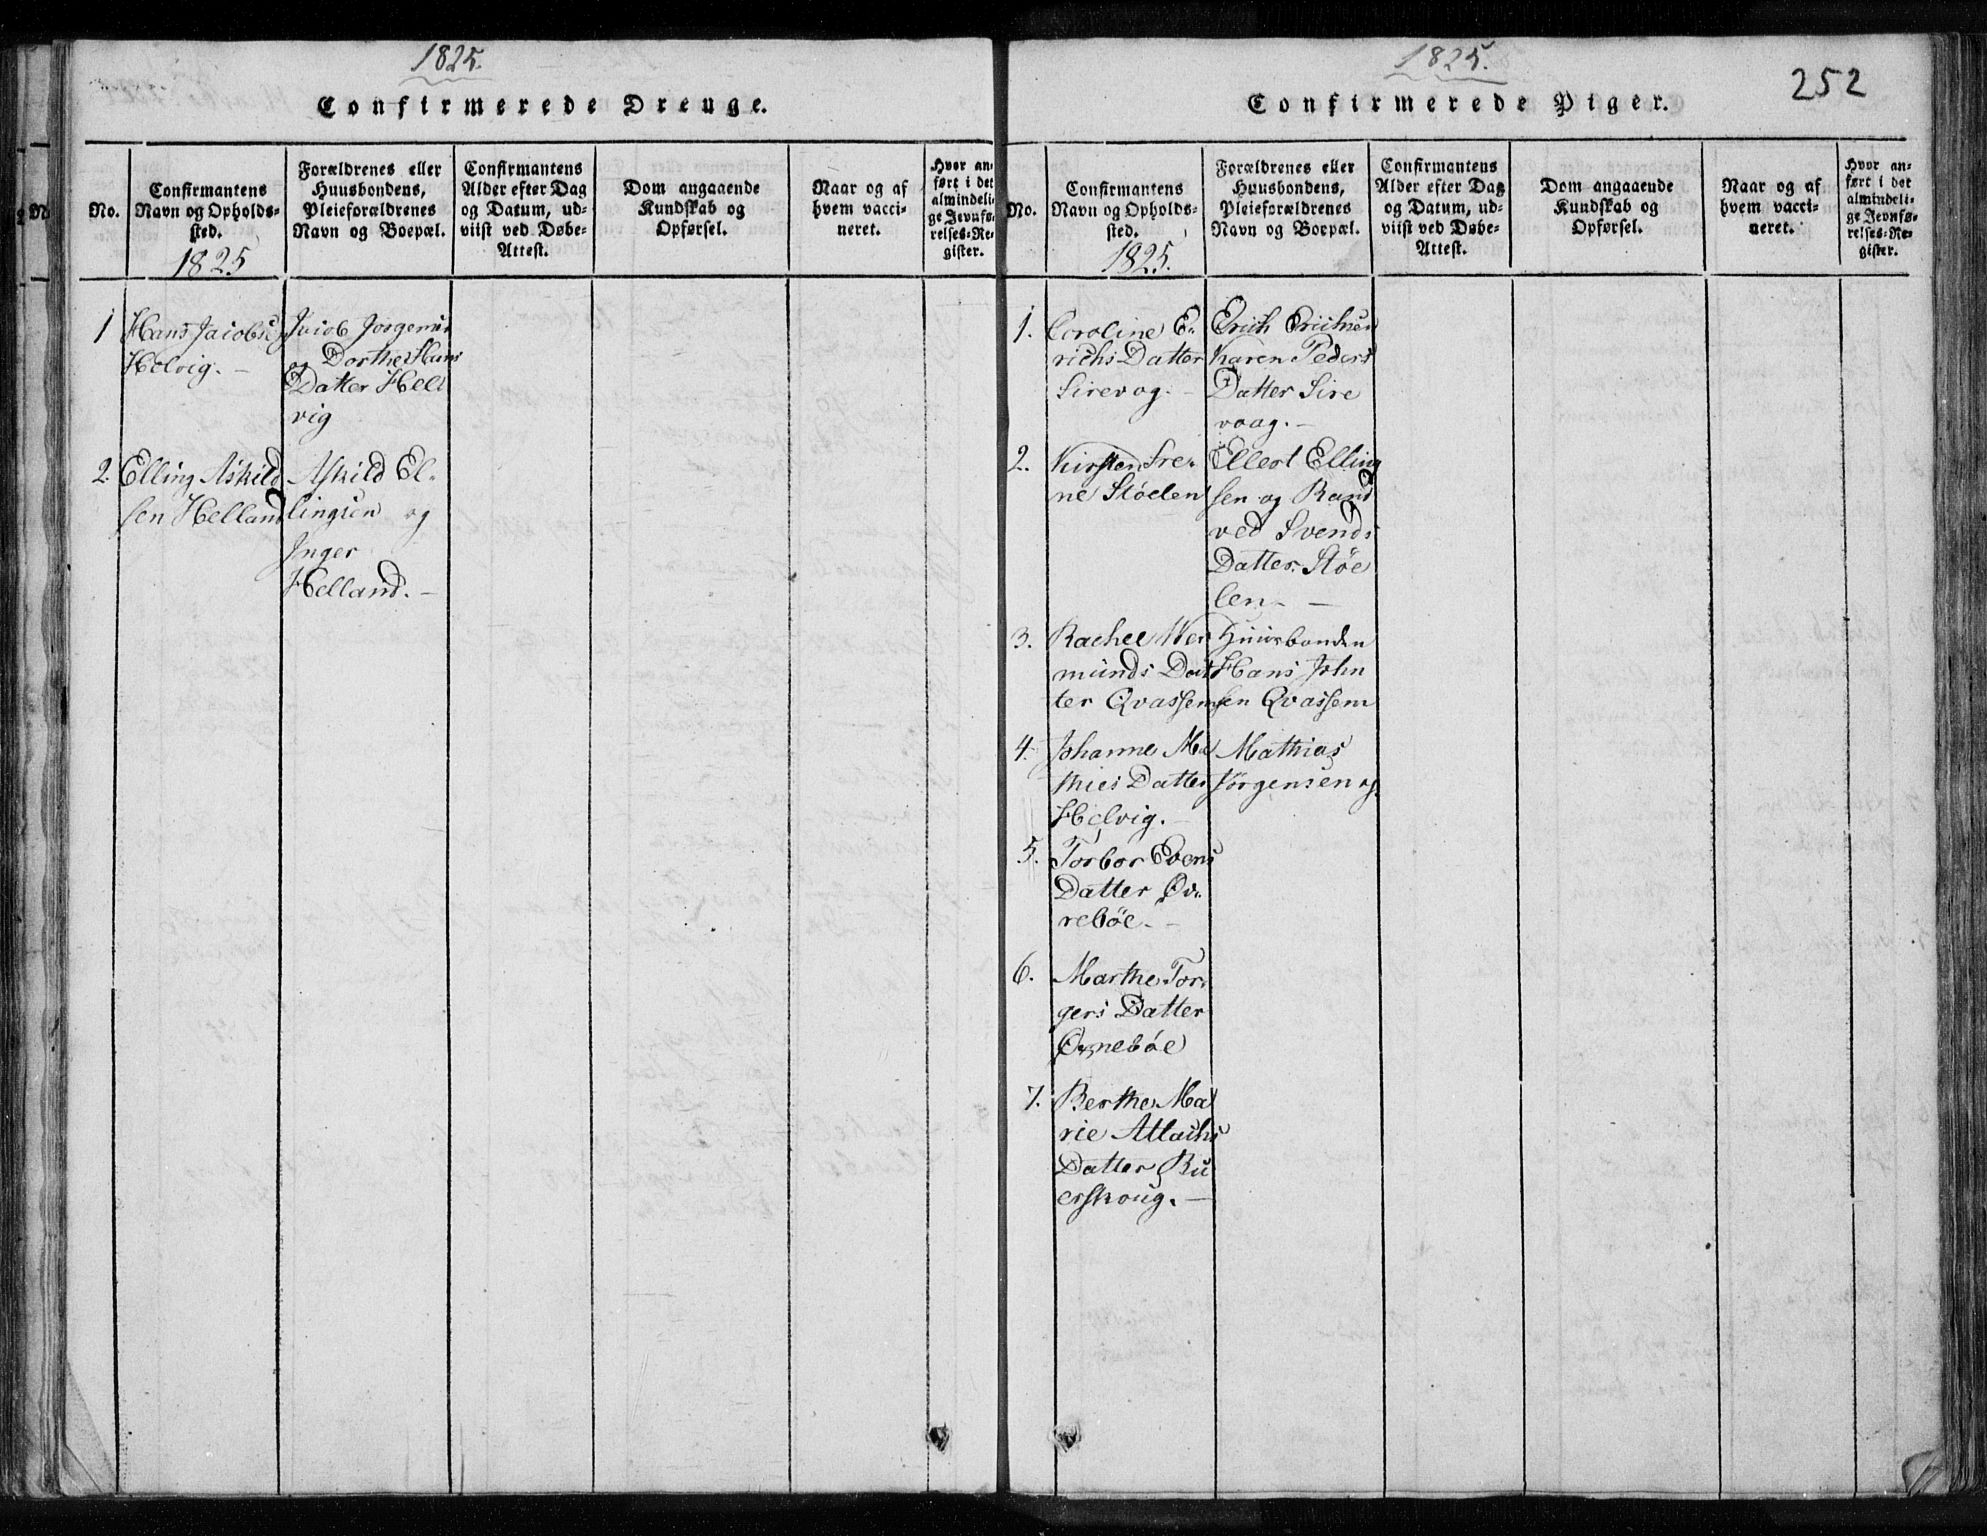 1825.
Confirmerede Drenge.
No.
Confirmantens
Navn og Opholds-
sted.
1825
Forældrenes eller
Huusbondens,
Pleieforældrenes
Navn og Boepæl.
Confirmantens
Alder efter Dag
og Datum, ud-
viist ved Døbe-
Attest.
Dom angaaende
Kundskab og
Opførsel.
Naar og af
hvem vacci-
neret.
Hvor an-
ført i det
almindeli-
ge Jevnfø-
relses-Re-
gister.
1
Hans Jacobsen
Helvig. -
Jacob Jørgensen
og Dorthe Hans
Datter Hell
vig
2.
Elling Askild
sen Helland
Askild El-
lingsen og
Inger
Helland. -
1825.
252
Confirmerede Piger.
No.
Confirmantens
Navn og Opholds-
sted.
1825.
Forældrenes eller
Huusbondens,
Pleieforældrenes
Navn og Boepæl.
Confirmantens
Alder efter Dag
og Datum, ud-
viist ved Døbe-
Attest.
Dom angaaende
Kundskab og
Opførsel.
Naar og af
hvem vacci-
neret.
Hvor an-
ført i det
almindeli-
ge Jevnfø-
relses-Re-
gister.
1.
Caroline E-
richs Datter
Sirevog. -
Erich Erichsen
Karen Peders
Datter Sire
vaag. -
2.
Kirsten
ne Støelen
Ellert Elling
sen og Rand
ved Svends
Datter Støe
len. -
3.
Rachel Wer
munds Dat
ter Qvassem
Huusbonden
Hans John
sen Qvassem
4.
Johanne Ma
thies Datter
Helvig. -
Mathias
Jørgensen og
5.
Torbor Evens
Datter Øv-
rebøe. -
6.
Marthe Tor-
gers Datter
7.
Berthe Ma
rie Atlachs
Datter Bu
erskoug. -